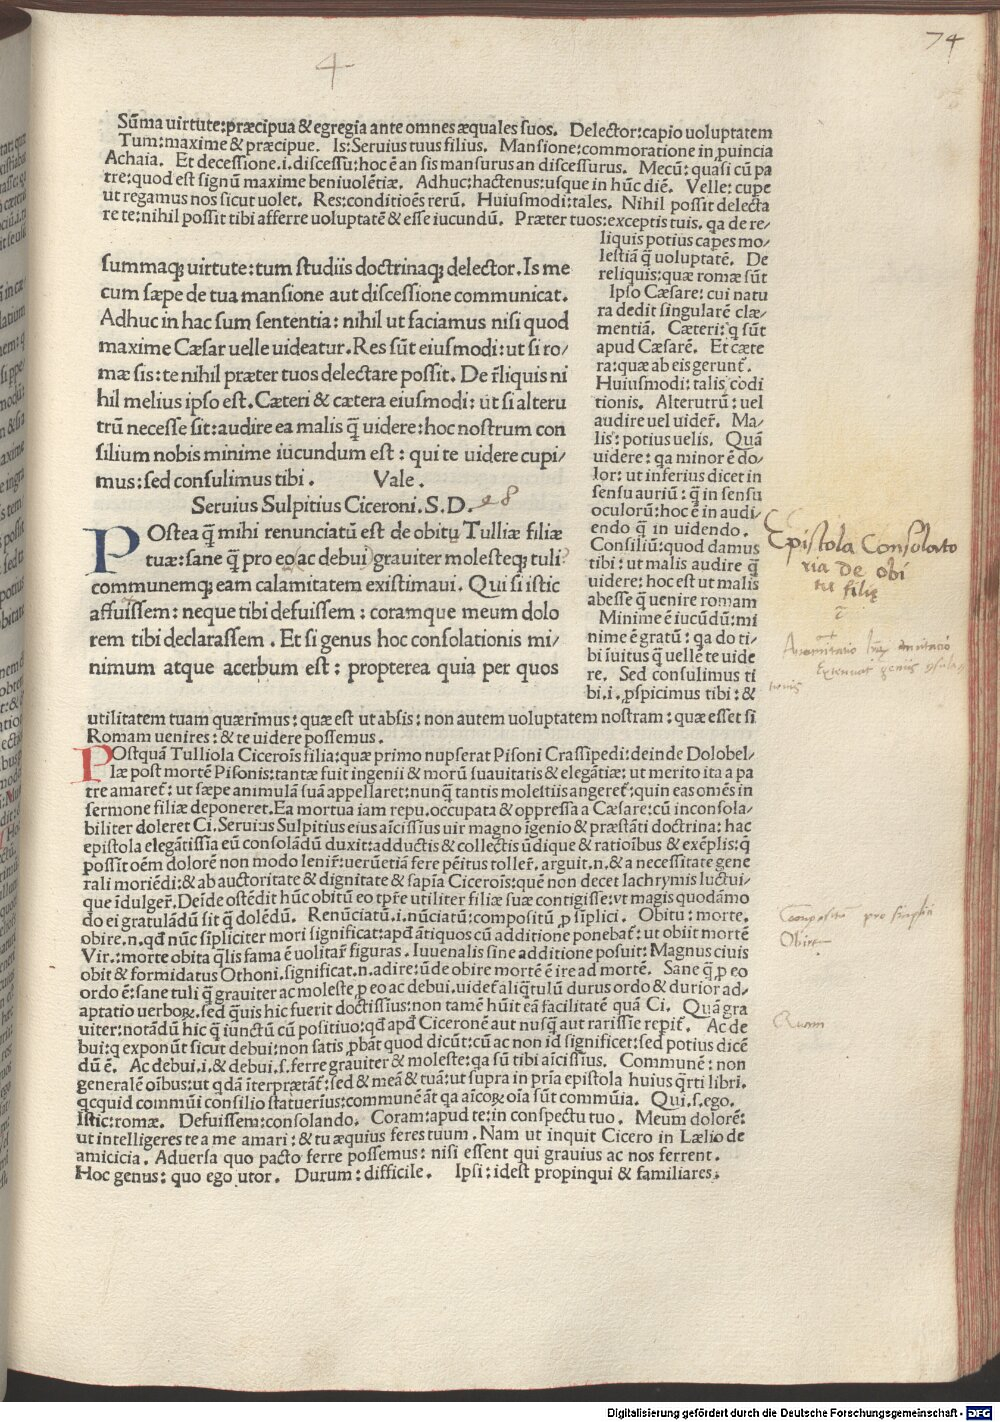 74
4
Sūma uirtute:præcipua & egregia ante omnes æquales suos. Delector:capio uoluptatem
Tum:maxime & præcipue. Is:Seruius tuus filius. Mansione:commoratione in ꝓuincia
Achaia. Et decessione.i.discessu:hoc ē an sis mansurus an discessurus. Mecū:quasi cū pa
tre:quod est signū maxime beniuolētiæ. Adhuc:hactenus:usque in hūc diē. Velle:cupe
ut regamus nos sicut uolet. Res:conditioēs rerū. Huiusmodi:tales. Nihil possit delecta
re te:nihil possit tibi afferre uoluptatē & esse iucundū. Præter tuos:exceptis tuis. qa de re/
liquis potius capes mo/
lestiā q̄ uoluptatē. De
reliquis:quæ romæ sūt
Ipso Cæsare:cui natu
ra dedit singularē clæ/
mentiā. Cæteri:q sūt
apud Cæsarē. Et cæte
ra:quæ ab eis gerunt̄.
Huiusmodi:talis cōdi
tionis. Alterutrū:uel
audire uel uider̄. Ma/
lis:potius uelis. Quā
uidere:qa minor ē do/
lor:ut inferius dicet in
sensu auriū:q̄ in sensu
oculorū:hoc ē in audi/
endo q̄ in uidendo.
Consiliū:quod damus
tibi:ut malis audire q̄
uidere:hoc est ut malis
abesse q̄ uenire romam
Minime ē iucūdū:mi
nime ē gratū:qa do ti/
bi īuitus q̄ uellē te uide
re. Sed consulimus ti
bi.i.ꝓspicimus tibi:&
summaqꝫ uirtute:tum studiis doctrinaqꝫ delector.Is me
cum sæpe de tua mansione aut discessione communicat.
Adhuc in hac sum sententia:nihil ut faciamus nisi quod
maxime Cæsar uelle uideatur.Res sūt eiusmodi:ut si ro/
mæ sis:te nihil præter tuos delectare possit. De r̄liquis ni
hil melius ipso est.Cæteri & cætera eiusmodi:ut si alteru
trū necesse sit:audire ea malis q̄ uidere:hoc nostrum con
silium nobis minime iucundum est:qui te uidere cupi/
mus:sed consulimus tibi. Vale.
Seruius Sulpitius Ciceroni.S.D.
POstea q̄ mihi renunciatū est de obitu Tulliæ filiæ
tuæ:sane q̄ pro eo ac debui grauiter molesteqꝫ tuli
communemqꝫ eam calamitatem existimaui. Qui si istic
affuissem:neque tibi defuissem:coramque meum dolo
rem tibi declarassem. Et si genus hoc consolationis mi/
nimum atque acerbum est:propterea quia per quos
utilitatem tuam quærimus:quæ est ut absis:non autem uoluptatem nostram:quæ esset si
Romam uenires:& te uidere possemus.
POstquā Tulliola Ciceroīs filia:quæ primo nupserat Pisoni Crassipedi:deinde Dolobel/
læ post mortē Pisonis:tantæ fuit ingenii & morū suauitatis & elegātiæ:ut merito ita a pa
tre amaret̄:ut sæpe animulā suā appellaret:nunq̄ tantis molestiis angeret̄:quin eas omēs in
sermone filiæ deponeret.Ea mortua iam repu.occupata & oppressa a Cæsare:cū inconsola/
biliter doleret Ci.Seruius Sulpitius eius aīcissius uir magno īgenio & præstāti doctrina:hac
epistola elegātissīa eū consolādū duxit:adductis & collectis ūdique & ratioībus & exēplis:q̄
possīt oēm dolorē non modo lenir̄:uerūetiā fere pēitus toller̄.arguit.n.& a necessitate gene
rali moriēdi:& ab auctoritate & dignitate & sapīa Ciceroīs:quē non decet lachrymis luctui/
que īdulger̄.Deīde ostēdit hūc obitū eo tp̄re utiliter filiæ suæ contigisse:ut magis quodāmo
do ei gratulādū sit q̄ dolēdū. Renūciatū.i.nūciatū:compositū ꝓ sīplici. Obitu:morte.
obire.n.qd̄ nūc sīpliciter mori significat:apd̄ ātiquos cū additione ponebat̄:ut obiit mortē
Vir.:morte obita q̄lis fama ē uolitar̄ figuras. Iuuenalis sine additione posuit:Magnus ciuis
obit & formidatus Othoni.significat.n.adire:ūde obire mortē ē ire ad mortē. Sane q̄ ꝓ eo
ordo ē:sane tuli q̄ grauiter ac moleste ꝓ eo ac debui.uidet̄ aliq̄tulū durus ordo & durior ad/
aptatio uerboꝝ.sed q̄uis hic fuerit doctissius:non tamē hūit eā facilitatē quā Ci. Quā gra
uiter:notādū hic q̄ iunctū cū positiuo:qd̄ apd̄ Ciceronē aut nusq̄ aut rarissīe repīt̄. Ac de
bui:q exponūt sicut debui:non satis ꝓbāt quod dicūt:cū ac non id significet:sed potius dicē
dū ē. Ac debui.i.& debui.s.ferre grauiter & moleste:qa sū tibi aīcissius. Communē:non
generalē oībus:ut qdā īterprætāt̄:sed & meā & tuā:ut supra in prīa epistola huius q̄rti libri.
qcquid commūi consilio statuerīus:communē āt qa aīcoꝝ oīa sūt commūia. Qui.s.ego.
Istic:romæ. Defuissem:consolando. Coram:apud te:in conspectu tuo. Meum dolorē:
ut intelligeres te a me amari:& tu æquius feres tuum. Nam ut inquit Cicero in Lælio de
amicicia. Aduersa quo pacto ferre possemus:nisi essent qui grauius ac nos ferrent.
Hoc genus:quo ego utor. Durum:difficile. Ipsi:idest propinqui & familiares:
Epistola Consolato
ria De obi
tu filię
Compositū pro simplici
Obire
Quam
Digitalisierung gefördert durch die Deutsche Forschungsgemeinschaft - DFG